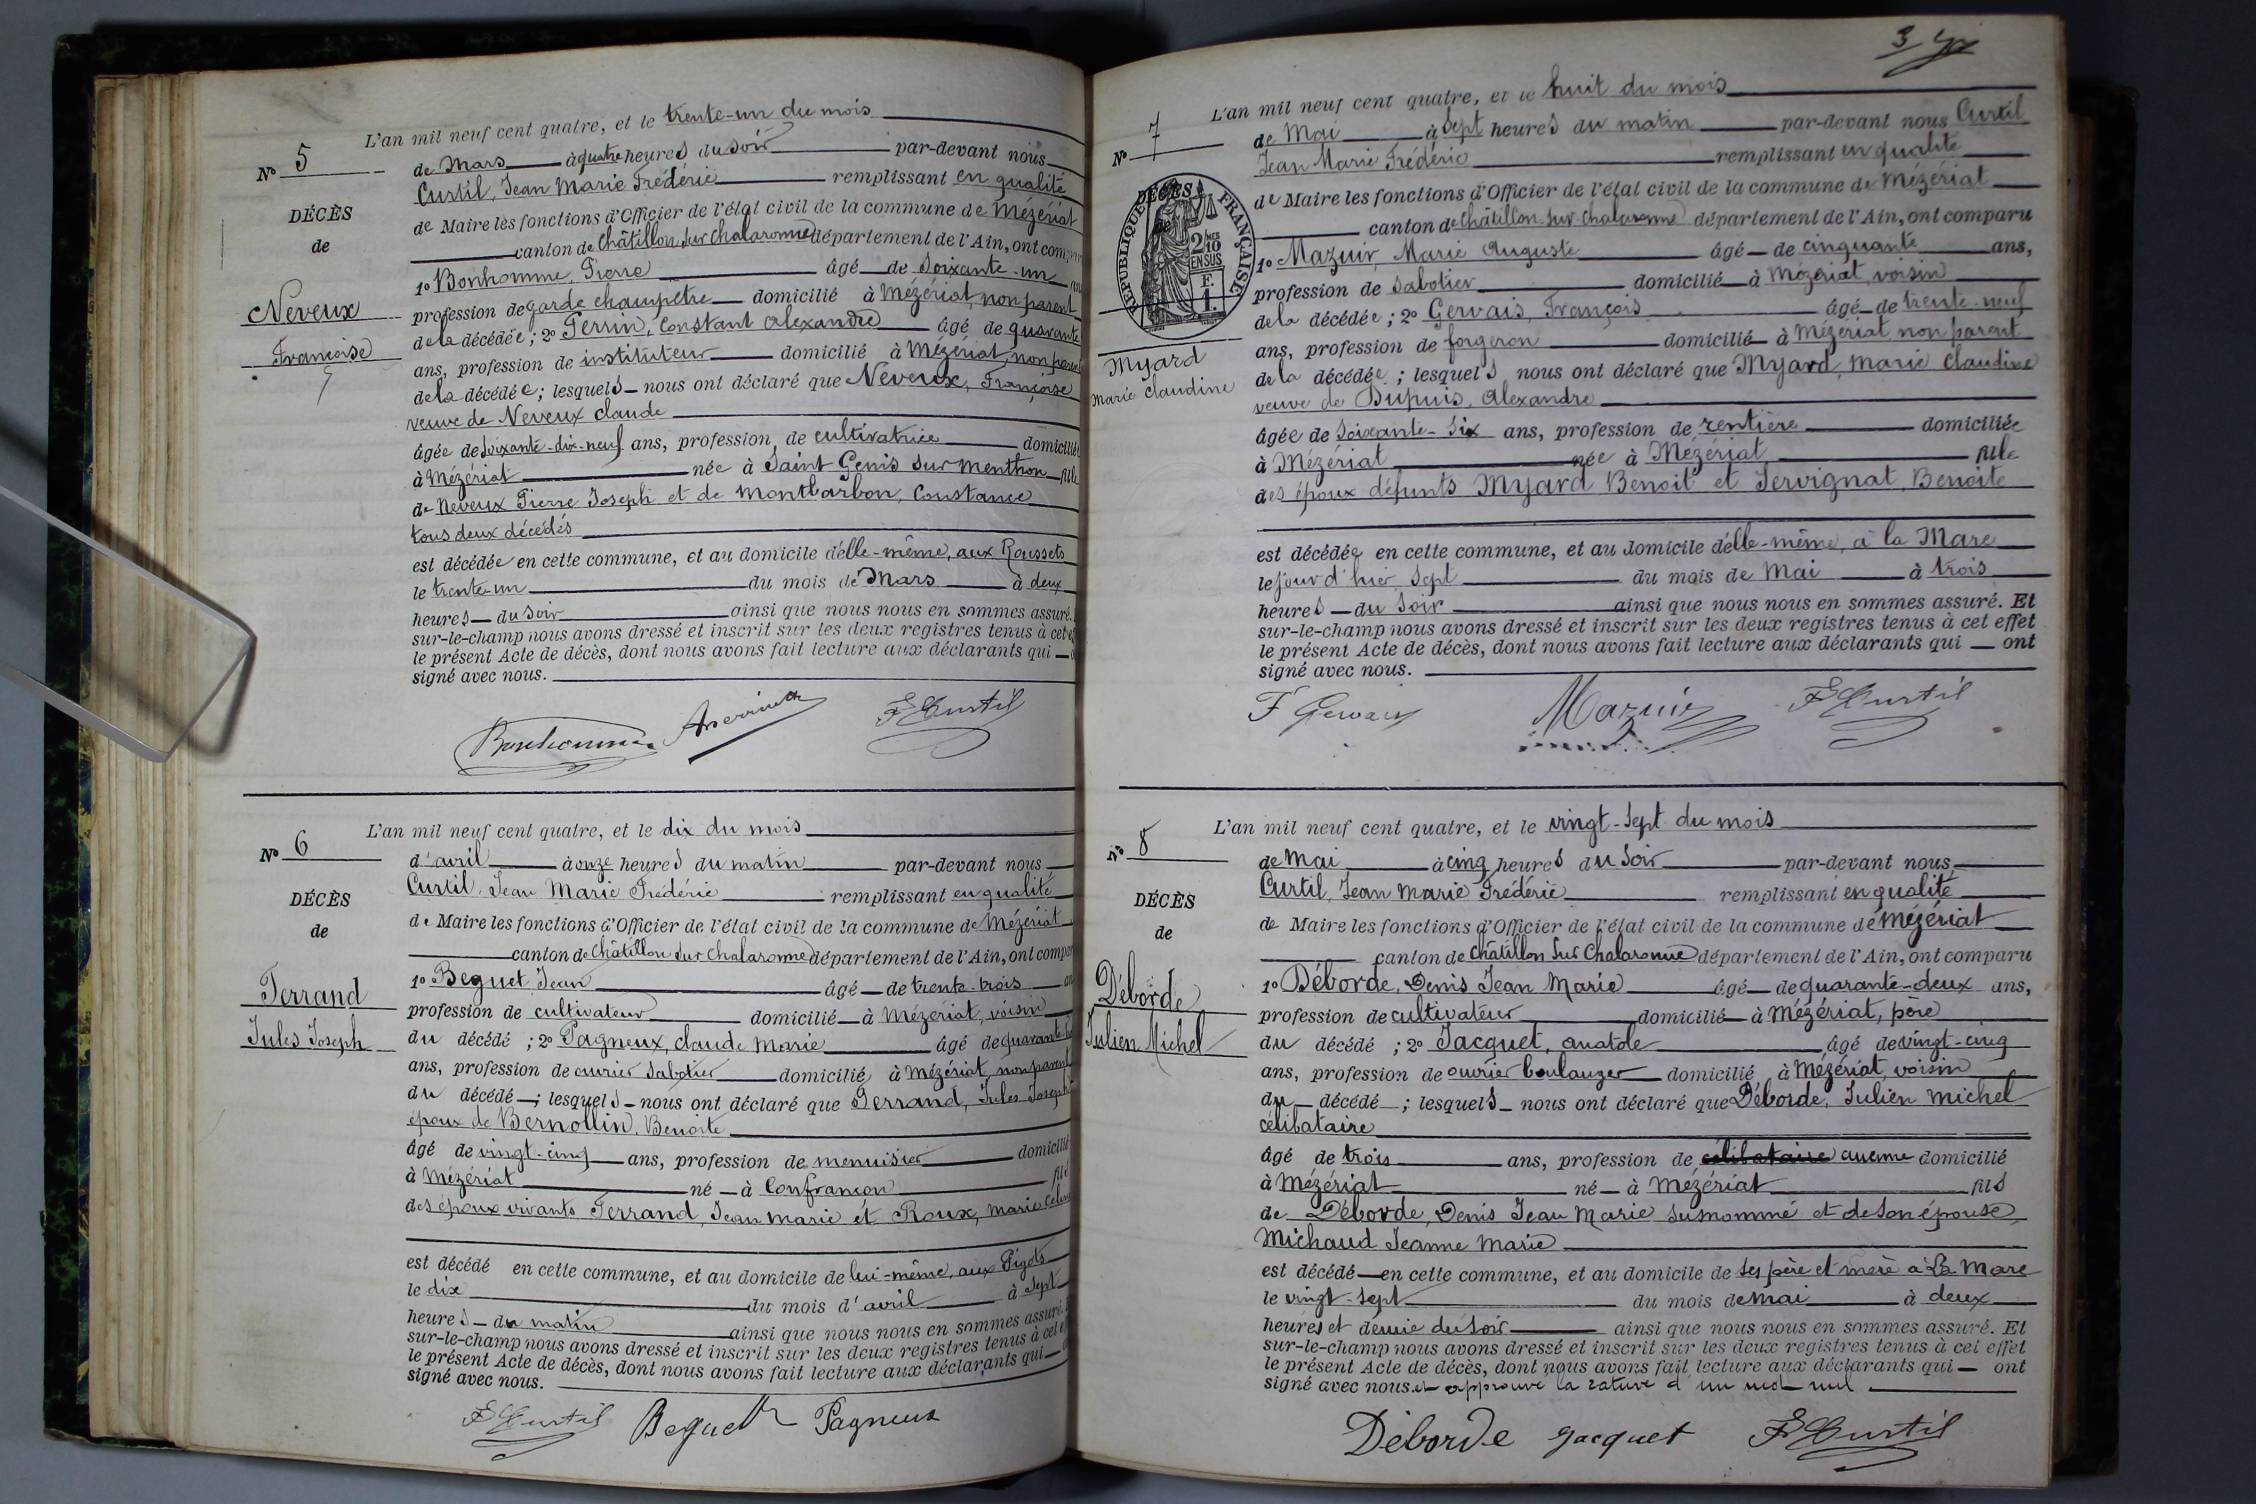 L'an mil neuf cent quatre, et le trente-un du mois
No 5
de Mars à quatre heures du soir par-devant nous
Curtil, Jean Marie Frédéric remplissant en qualité
DÉCÈS
de Maire les fonctions d'Officier de l'état civil de la commune de Mézériat
de
canton de Châtillon sur Chalaronne département de l'Ain, ont compa
1o Bonhomme, Pierre âgé de soixante-un an
Neveux
profession de garde champêtre domicilié à Mézériat, non parent
de la décédée; 2o Perrin, Constant Alexandre âgé de quarante
Françoise
ans, profession de instituteur domicilié à Mézériat, non paren
de la décédée; lesquels nous ont déclaré que Neveux, Françoise
veuve de Neveux Claude
âgée de soixante-dix-neuf ans, profession de cultivatrice domiciliée
à Mézériat née à Saint Genis sur Menthon fille
de Neveux Pierre Joseph et de Montbarbon, Constance
tous deux décédés
est décédée en cette commune, et au domicile d'elle-même, aux Roussets
le trente-un du mois de Mars à deux
heures du soir ainsi que nous nous en sommes assuré.
sur-le-champ nous avons dressé et inscrit sur les deux registres tenus à cet e
le présent Acte de décès, dont nous avons fait lecture aux déclarants qui
signé avec nous.
Bonhomme F Curtil
L'an mil neuf cent quatre, et le dix du mois
No 6
d'avril à onze heures du matin par-devant nous
Curtil, Jean Marie Frédéric remplissant en qualité
DÉCÈS
de Maire les fonctions d'Officier de l'état civil de la commune de Mézériat
de
canton de Châtillon sur Chalaronne département de l'Ain, ont compa
1o Beguet Jean âgé de trente-trois an
Ferrand
profession de cultivateur domicilié à Mézériat, voisin
Jules Joseph
du décédé; 2o Pagneux, Claude Marie âgé de quarante
ans, profession de ouvrier sabotier domicilié à Mézériat, non parent
du décédé; lesquels nous ont déclaré que Ferrand, Jules Joseph
époux de Bernollin, Benoite
âgé de vingt-cinq ans, profession de menuisier domicilié
à Mézériat né à Confrançon fils
des époux vivants Ferrand, Jean Marie et Roux, Marie
est décédé en cette commune, et au domicile de lui-même, aux Pigots
le dix du mois d'avril à sept
heures du matin ainsi que nous nous en sommes assuré.
sur-le-champ nous avons dressé et inscrit sur les deux registres tenus à cet e
le présent Acte de décès, dont nous avons fait lecture aux déclarants qui
signé avec nous.
F Curtil Beguet Pagneux
3
L'an mil neuf cent quatre, et le huit du mois
No 7
de Mai à sept heures du matin par-devant nous Curtil
Jean Marie Frédéric remplissant en qualité
DÉCÈS
de
RÉPUBLIQUE FRANÇAISE
2/10 MES EN SUS
F. 1.
de Maire les fonctions d'Officier de l'état civil de la commune de Mézériat
canton de Châtillon sur Chalaronne département de l'Ain, ont comparu
1o Mazuir, Marie Auguste âgé de cinquante ans,
profession de sabotier domicilié à Mézériat, voisin
de la décédée; 2o Gervais, François âgé de trente-neuf
Myard
ans, profession de forgeron domicilié à Mézériat non parent
Marie Claudine
de la décédée; lesquels nous ont déclaré que Myard, Marie Claudine
veuve de Dupuis, Alexandre
âgée de soixante-six ans, profession de rentière domiciliée
à Mézériat née à Mézériat fille
des époux défunts Myard Benoit et Servignat, Benoite
est décédée en cette commune, et au domicile d'elle-même, à la Mare
le jour d'hier sept du mois de Mai à trois
heures du soir ainsi que nous nous en sommes assuré. Et
sur-le-champ nous avons dressé et inscrit sur les deux registres tenus à cet effet
le présent Acte de décès, dont nous avons fait lecture aux déclarants qui ont
signé avec nous.
F Gervais Mazuir F Curtil
L'an mil neuf cent quatre, et le vingt-sept du mois
No 8
de Mai à cinq heures du soir par-devant nous
Curtil, Jean Marie Frédéric remplissant en qualité
DÉCÈS
de Maire les fonctions d'Officier de l'état civil de la commune de Mézériat
de
canton de Châtillon sur Chalaronne département de l'Ain, ont comparu
Déborde
1o Déborde, Denis Jean Marie âgé de quarante-deux ans,
profession de cultivateur domicilié à Mézériat, père
Julien Michel
du décédé; 2o Jacquet, Anatole âgé de vingt-cinq
ans, profession de ouvrier boulanger domicilié à Mézériat, voisin
du décédé; lesquels nous ont déclaré que Déborde, Julien Michel
célibataire
âgé de trois ans, profession de célibataire aucune domicilié
à Mézériat né à Mézériat fils
de Déborde, Denis Jean Marie susnommé et de son épouse
Michaud Jeanne Marie
est décédé en cette commune, et au domicile de ses père et mère à La Mare
le vingt-sept du mois de mai à deux
heures et demie du soir ainsi que nous nous en sommes assuré. Et
sur-le-champ nous avons dressé et inscrit sur les deux registres tenus à cet effet
le présent Acte de décès, dont nous avons fait lecture aux déclarants qui ont
signé avec nous et approuvé la rature d'un mot nul
Déborde Jacquet F Curtil